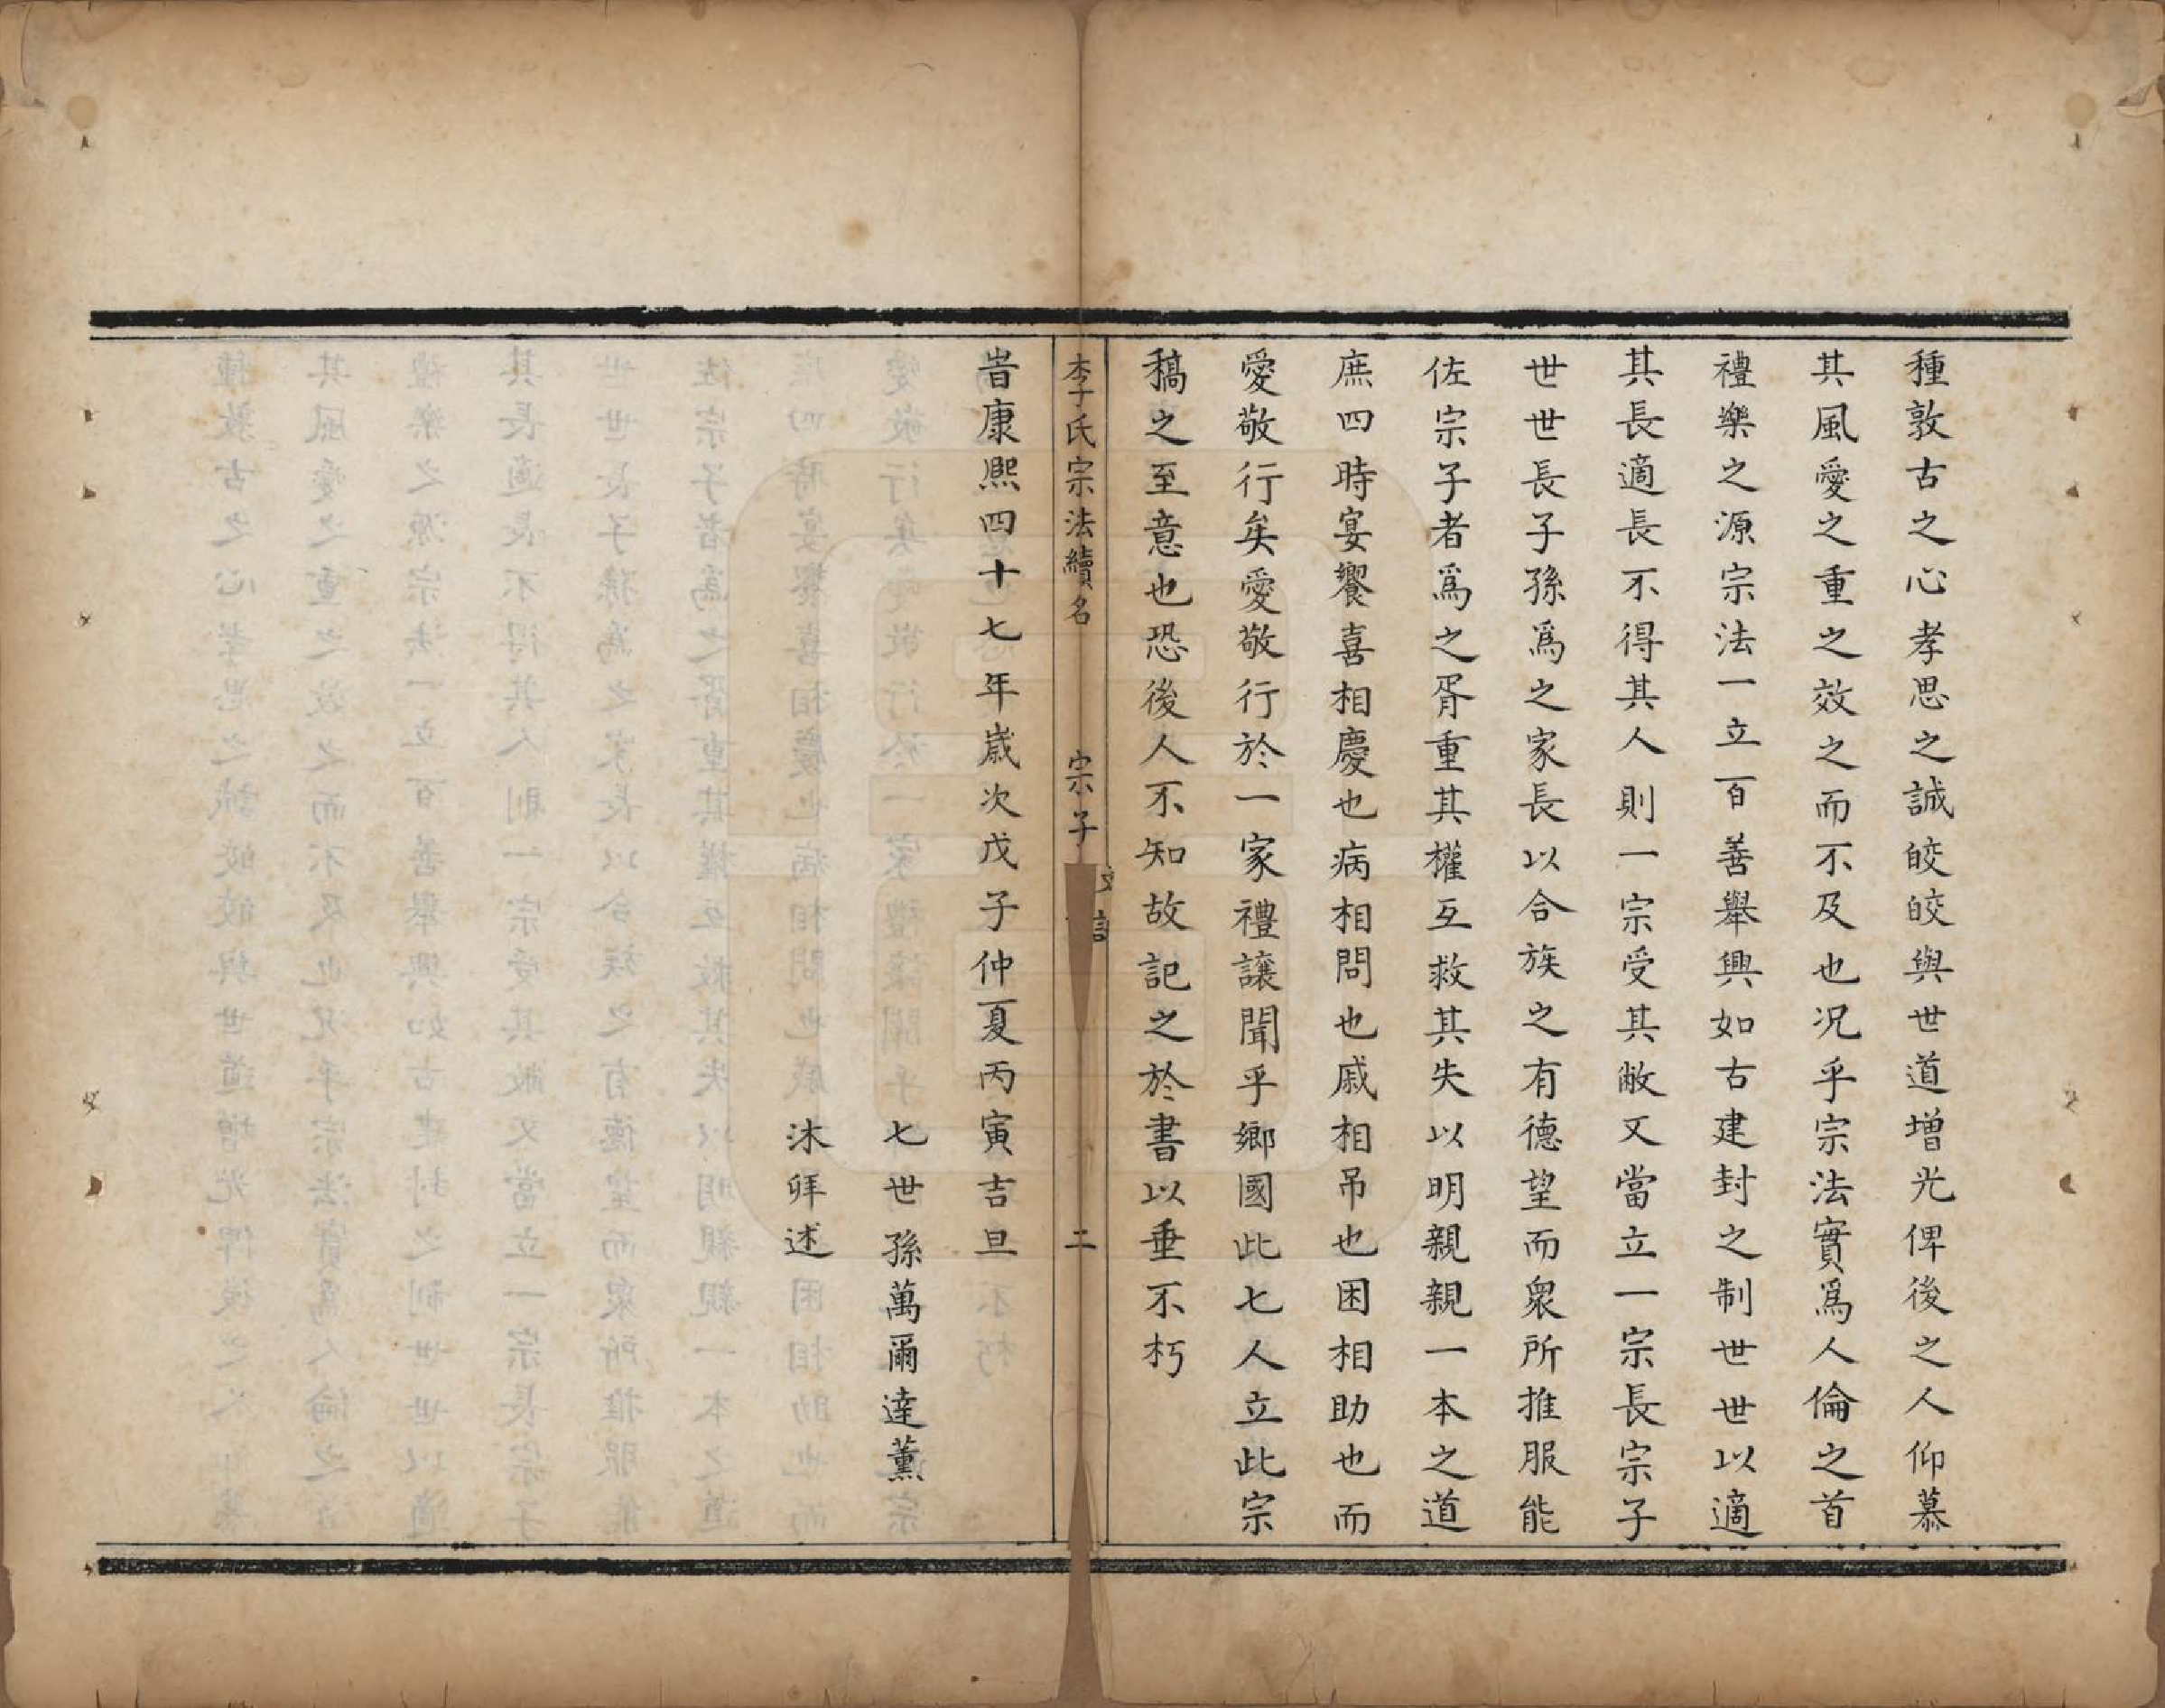 種敦古之心孝思之誠皎皎與世道增光俾後之人仰慕
其風愛之重之效之而不及也况乎宗法實爲人倫之首
禮樂之源宗法一立百善舉興如古建封之制世世以適
其長適長不得其人則一宗受其敝又當立一宗長宗子
世世長子孫爲之家長以合族之有德望而衆所推服能
佐宗子者爲之胥重其權互救其失以明親親一本之道
庶四時宴饗喜相慶也病相問也戚相吊也困相助也而
愛敬行矣愛敬行於一家禮讓聞乎鄉國此七人立此宗
稿之至意也恐後人不知故記之於書以垂不朽
李氏宗法續名 宗子 二
旹康熙四十七年歲次戊子仲夏丙寅吉旦
七世孫萬爾達薰
沐拜述